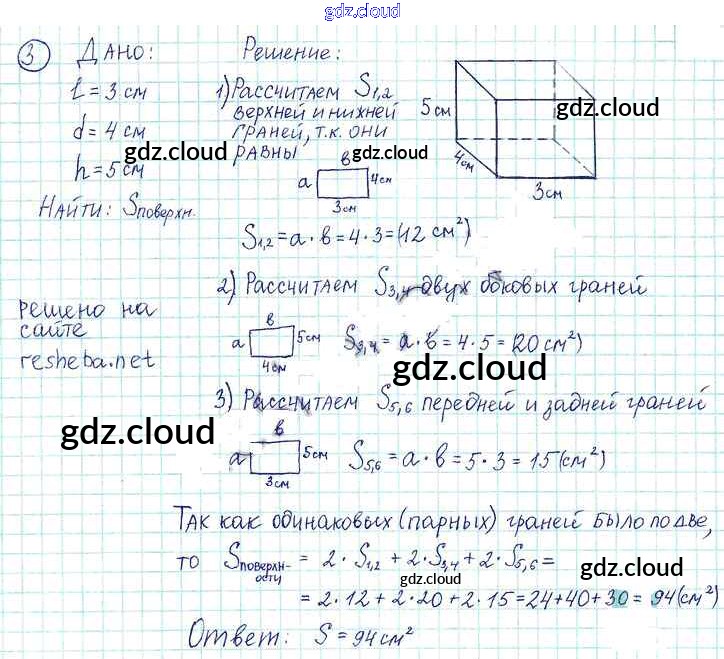 gdz.cloud
gdz.cloud
3 Дано: Решение:
l = 3 см
d = 4 см
h = 5 см
Найти: Sповерхн.
1) Рассчитаем S1,2
верхней и нижней
граней, т.к. они
равны
gdz.cloud
gdz.cloud
gdz.cloud
5 см
4 см
3 см
в
а 4 см
3 см
S1,2 = а · в = 4 · 3 = (12 см²)
2) Рассчитаем S3,4 двух боковых граней
решено на
сайте
resheba.net
в
а 5 см
4 см
S3,4 = а · в = 4 · 5 = 20 см²)
gdz.cloud
3) Рассчитаем S5,6 передней и задней граней
gdz.cloud
в
а 5 см
3 см
S5,6 = а · в = 5 · 3 = 15 (см²)
Так как одинаковых (парных) граней было по две,
то Sповерхности = 2 · S1,2 + 2 · S3,4 + 2 · S5,6 =
gdz.cloud
gdz.cloud
= 2 · 12 + 2 · 20 + 2 · 15 = 24 + 40 + 30 = 94 (см²)
Ответ: S = 94 см²